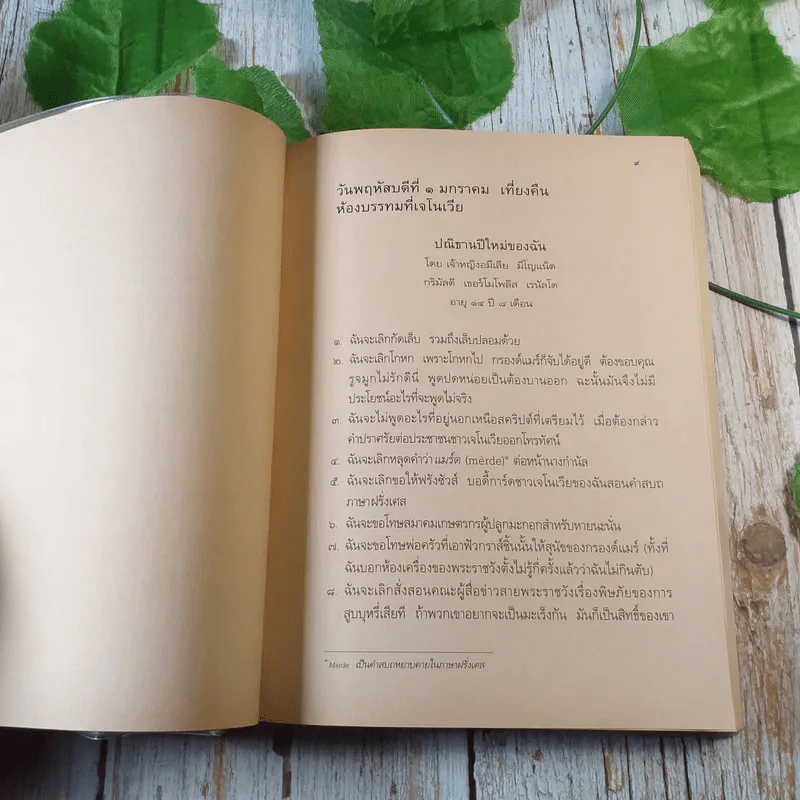 ๙
วันพฤหัสบดีที่ ๑ มกราคม เที่ยงคืน
ห้องบรรทมที่เจโนเวีย
ปณิธานปีใหม่ของฉัน
โดย เจ้าหญิงอมีเลีย มีโญแน็ต
กริมัลดี เธอร์โมโพลิส เรนัลโด
อายุ ๑๔ ปี ๘ เดือน
๑. ฉันจะเลิกกัดเล็บ รวมถึงเล็บปลอมด้วย
๒. ฉันจะเลิกโกหก เพราะโกหกไป กรองด์แมร์ก็จับได้อยู่ดี ต้องขอบคุณ
รูจมูกไม่รักดีนี่ พูดปดหน่อยเป็นต้องบานออก ฉะนั้นมันจึงไม่มี
ประโยชน์อะไรที่จะพูดไม่จริง
๓. ฉันจะไม่พูดอะไรที่อยู่นอกเหนือสคริปต์ที่เตรียมไว้ เมื่อต้องกล่าว
คำปราศรัยต่อประชาชนชาวเจโนเวียออกโทรทัศน์
๔. ฉันจะเลิกหลุดคำว่าแมร์ด (mèrde)* ต่อหน้านางกำนัล
๕. ฉันจะเลิกขอให้ฟรังซัวส์ บอดี้การ์ดชาวเจโนเวียของฉันสอนคำสบถ
ภาษาฝรั่งเศส
๖. ฉันจะขอโทษสมาคมเกษตรกรผู้ปลูกมะกอกสำหรับหายนะนั่น
๗. ฉันจะขอโทษพ่อครัวที่เอาฟัวกราส์ชิ้นนั้นให้สุนัขของกรองด์แมร์ (ทั้งที่
ฉันบอกห้องเครื่องของพระราชวังตั้งไม่รู้กี่ครั้งแล้วว่าฉันไม่กินตับ)
๘. ฉันจะเลิกสั่งสอนคณะผู้สื่อข่าวสายพระราชวังเรื่องพิษภัยของการ
สูบบุหรี่เสียที ถ้าพวกเขาอยากจะเป็นมะเร็งกัน มันก็เป็นสิทธิ์ของเขา
* Mèrde เป็นคำสบถหยาบคายในภาษาฝรั่งเศส